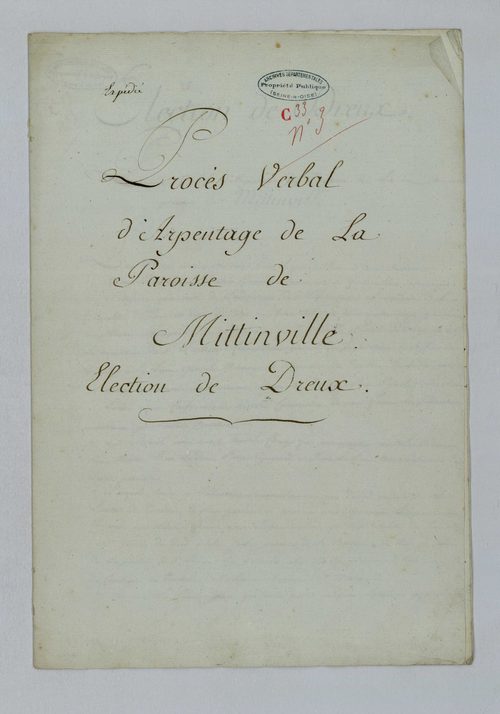 Expédié
ARCHIVES DÉPARTEMENTALES
Propriété Publique
(SEINE-&-OISE)
C 33
N° 9
Procès Verbal
d'Arpentage de La
Paroisse de
Mittinville
Election de Dreux.